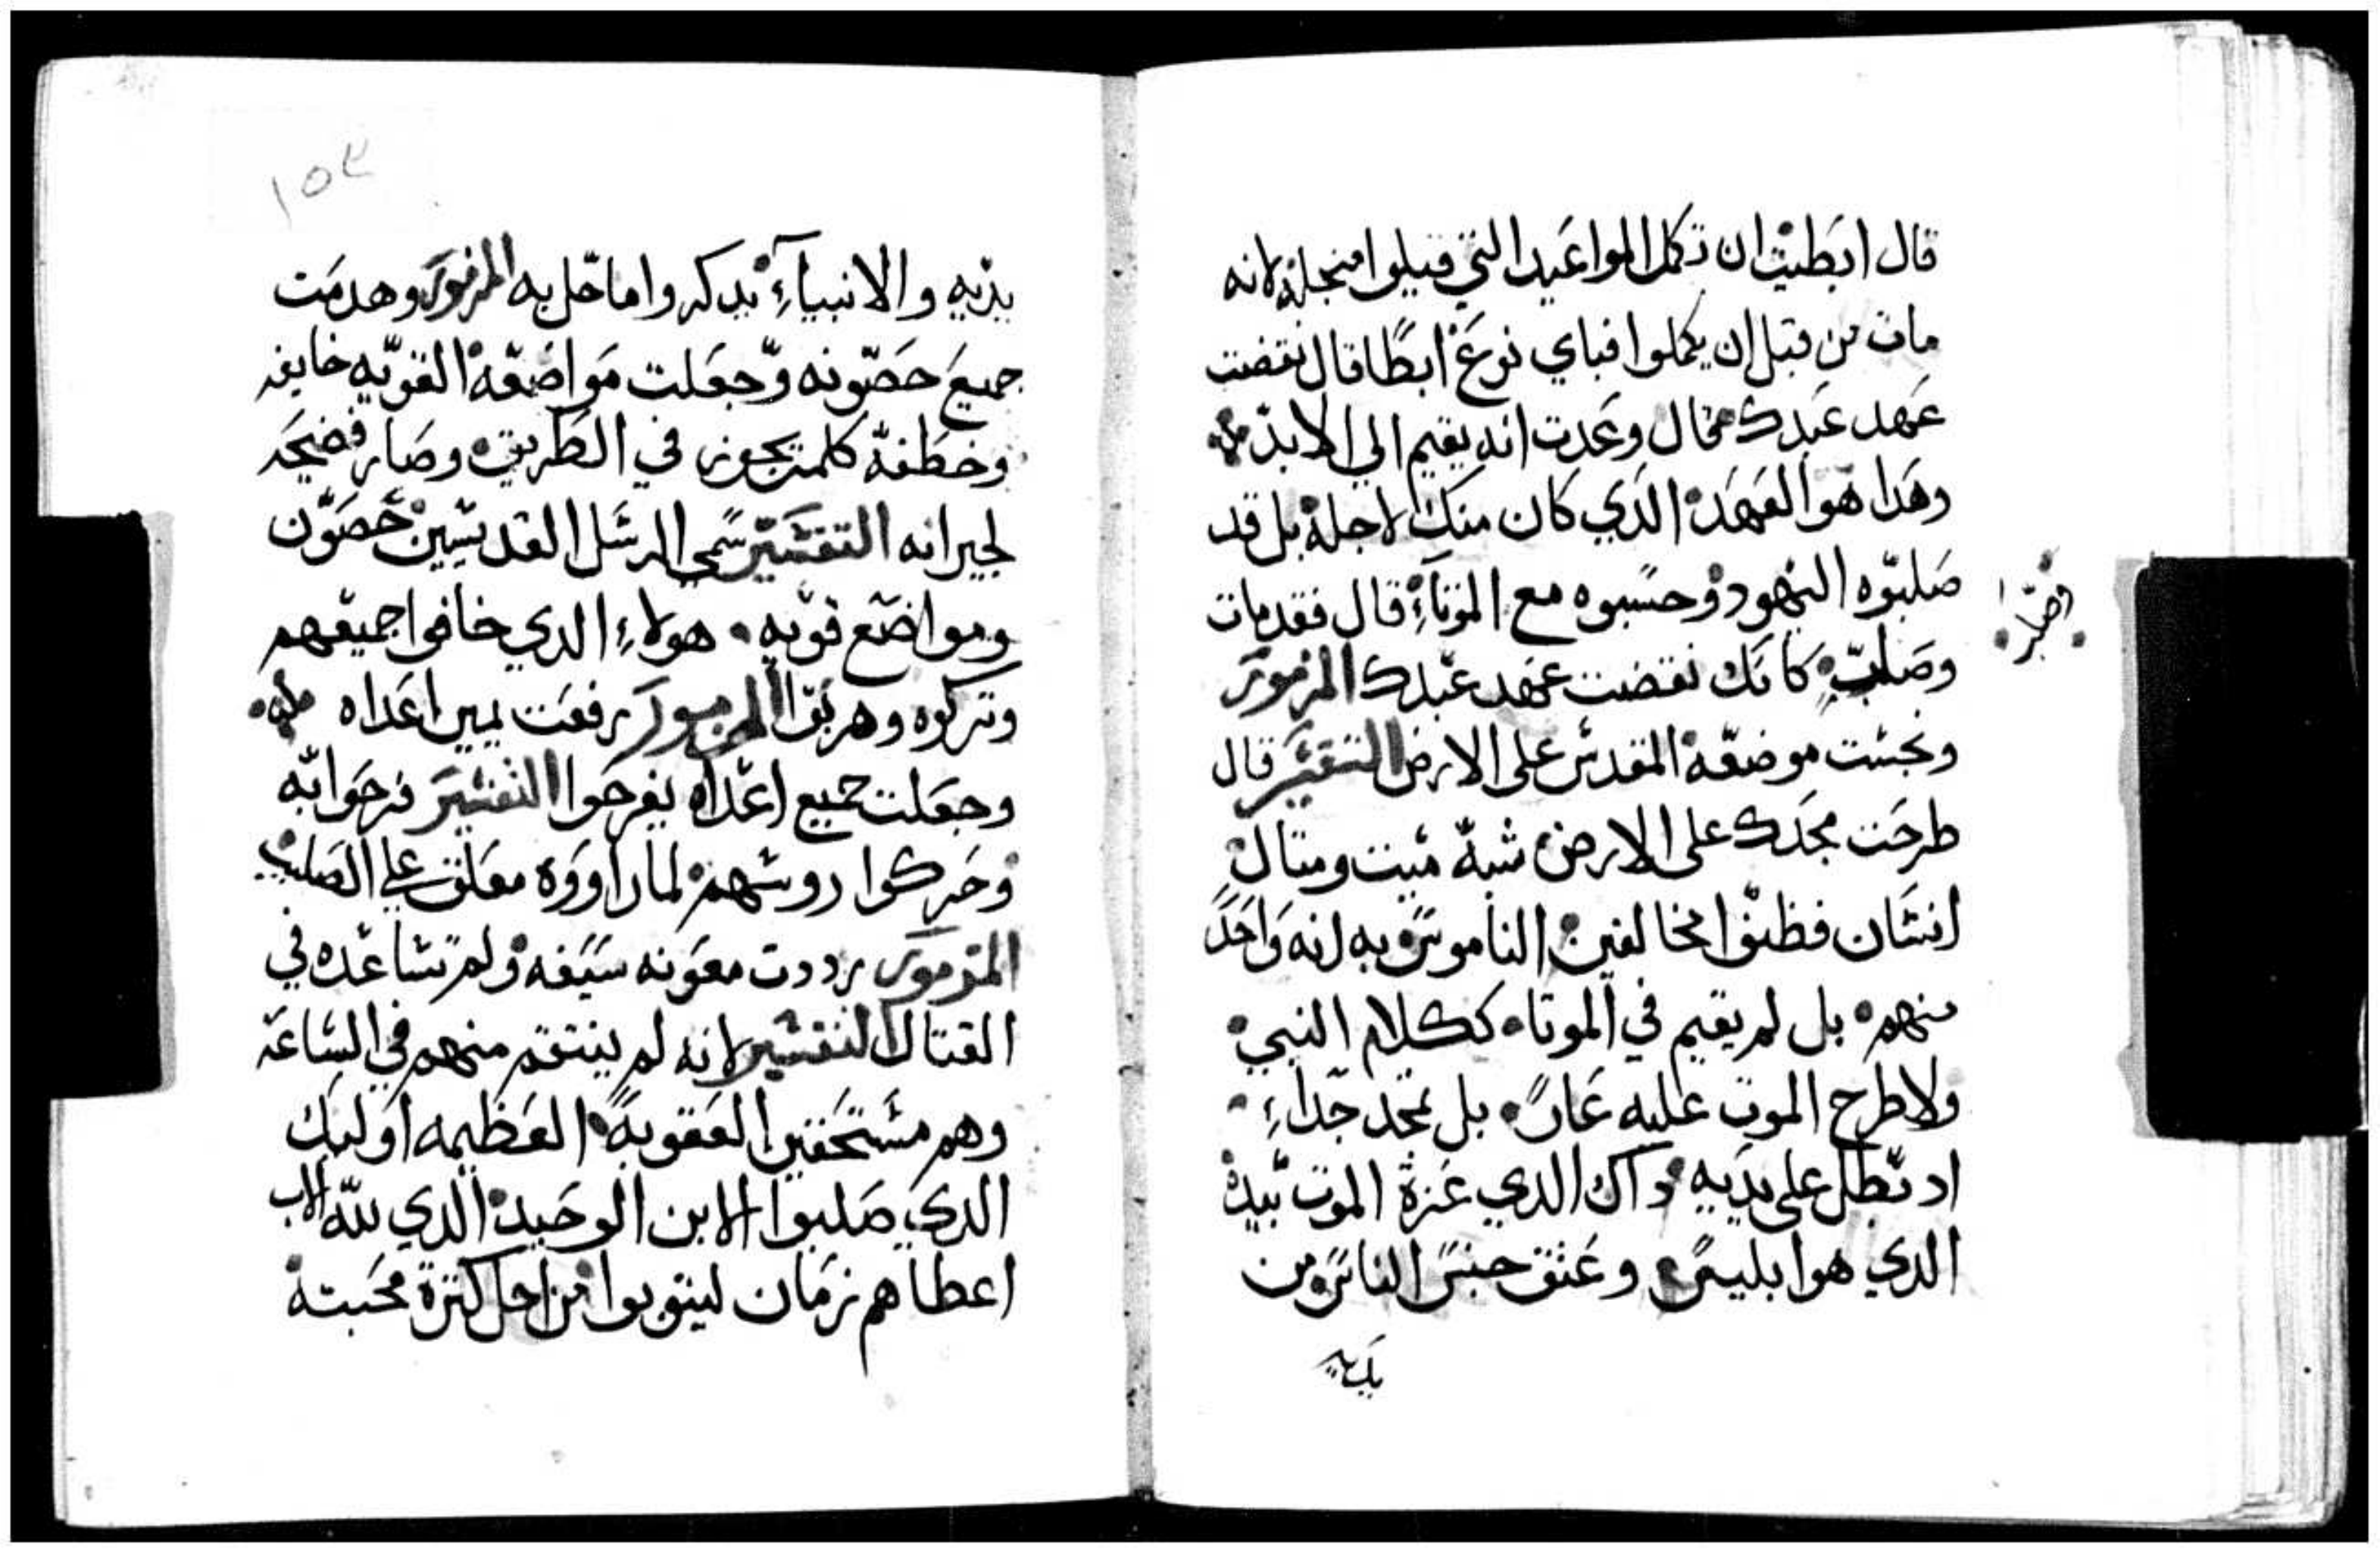 قال ابطيت ان تكمل المواعيد التي قيلوا منجلة لانه
مات من قبل ان يكملوا فباي نوع ابطا قال نقضت
عهد عبدك محال وعدت انه يقيم الي الابد
وهدا هو العهد الدي كان منك لاجلة بل قد
صلبوه اليهود وحسبوه مع الموتاء قال فقد مات
وصلب كانك نقضت عهد عبدك المزمور
ونجست موضعة المقدس على الارض التفسير قال
طرحت مجدك على الارض شبة ميت ومتال
انسان فظنوا مخالفين الناموس به انه واحد
منهم بل لم يقيم في الموتا ككلام النبي
ولا طرح الموت عليه عار بل تمجد جداء
اد تطل على يديه داك الدي عزة الموت بيدة
الدي هو ابليس وعتق جنس الناس من
يديه والانبياء يدكروا ما حل به المزمور وهدمت
جميع حصونه وجعلت مواضعة القويه خايفه
وخطفة كلمن يجوز في الطريق وصار فضيحه
لجيرانه التفسير سمي الرسل القديسين حصون
ومواضع قويه هولاء الدي خافوا جميعهم
وتركوه وهربوا المزمور رفعت يمين اعداه
وجعلت جميع اعداه يفرحوا التفسير فرحوا به
وحركوا روسهم لما راووه معلق على الصليب
المزمور رددت معونه سيفه ولم تساعده في
القتال التفسير لانه لم ينتقم منهم في الساعه
وهم مستحقين العقوبة العظيمه اوليك
الدي صلبوا الابن الوحيد الدي لله الاب
اعطاهم زمان ليتوبوا من اجل كترة محبتة